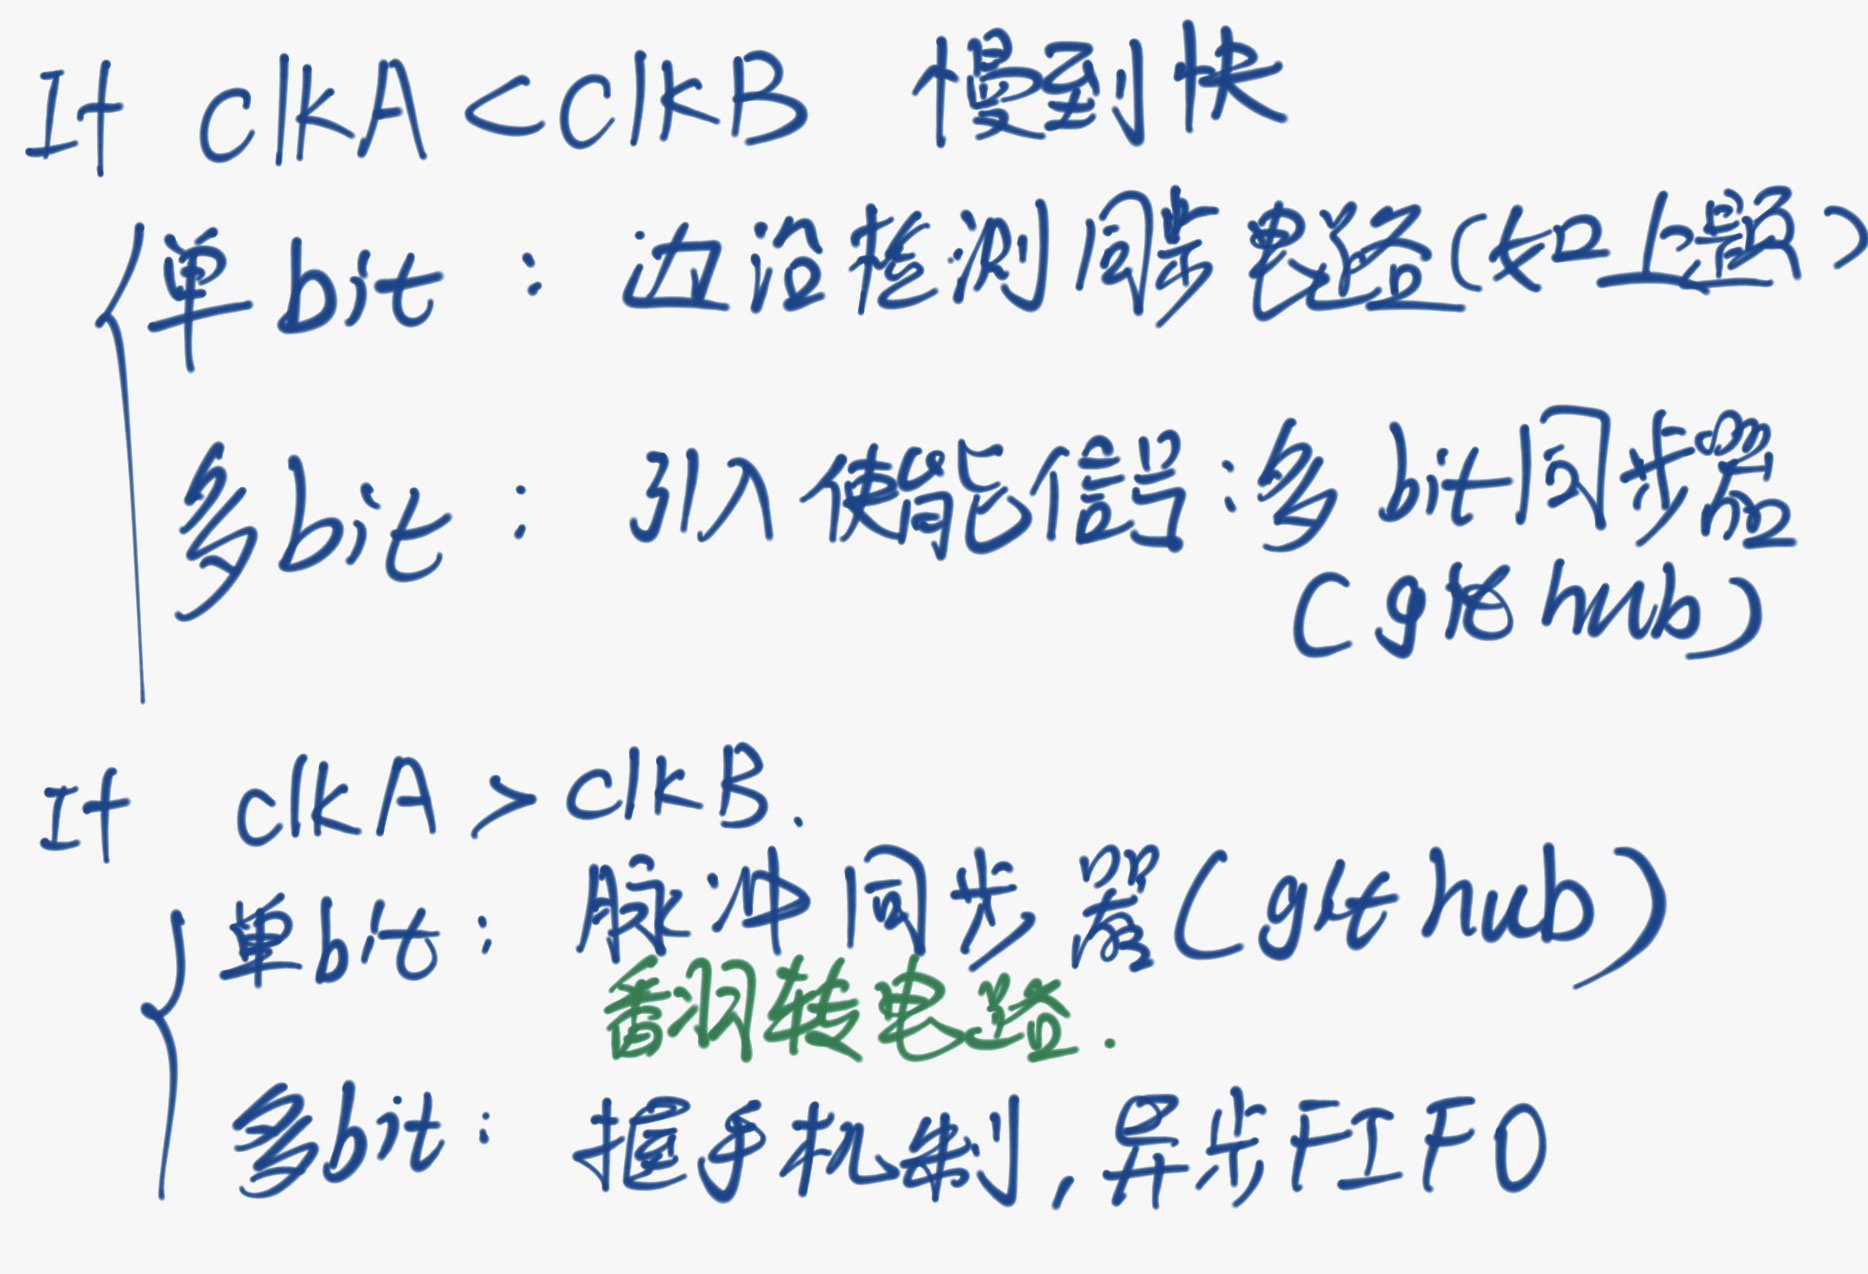 If clkA < clkB 慢到快
单bit : 边沿检测同步电路(如上题)
多bit : 引入使能信号:多bit同步器
(github)
If clkA > clkB.
单bit : 脉冲同步器(github)
翻转电路.
多bit : 握手机制,异步FIFO